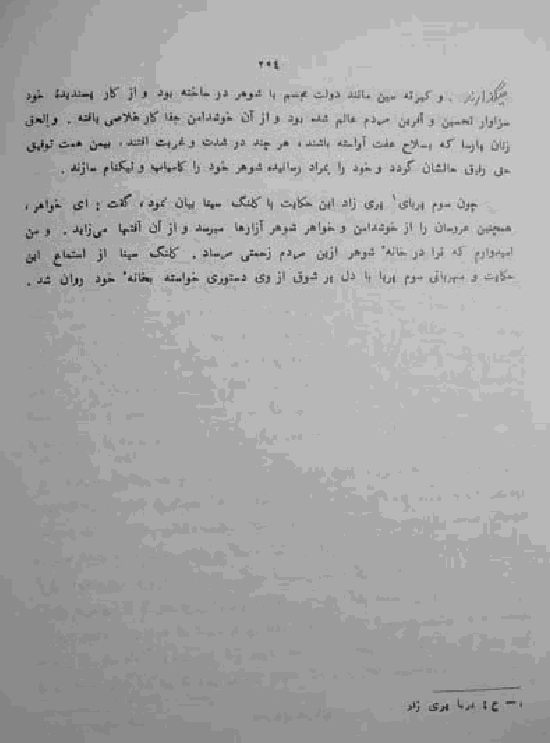 ۲۹۴
میگذارند . و کیرته سین مانند دولت مجسم با شوهر در ساخته بود و از کار پسندیدهٔ خود
سزاوار تحسین و آفرین مردم عالم شده بود و از آن خوشدامن جفا کار خلاصی یافته . والحق
زنان پارسا که بسلاح عفت آراسته باشند، هر چند در شدت و غربت افتند، بیمن همت توفیق
حق رفیق حالشان گردد و خود را بمراد رسانیده شوهر خود را کامیاب و نیکنام سازند .
چون سوم پربای۱ پری زاد این حکایت با کلنگ سینا بیان نمود، گفت : ای خواهر،
همچنین عروسان را از خوشدامن و خواهر شوهر آزارها میرسد و از آن آفتها می‌زاید . و من
امیدوارم که ترا در خانهٔ شوهر ازین مردم زحمتی مرساد . کلنگ سینا از استماع این
حکایت و مهربانی سوم پربا با دل پر شوق از وی دستوری خواسته بخانهٔ خود روان شد .
۱ — ع : پربا پری زاد